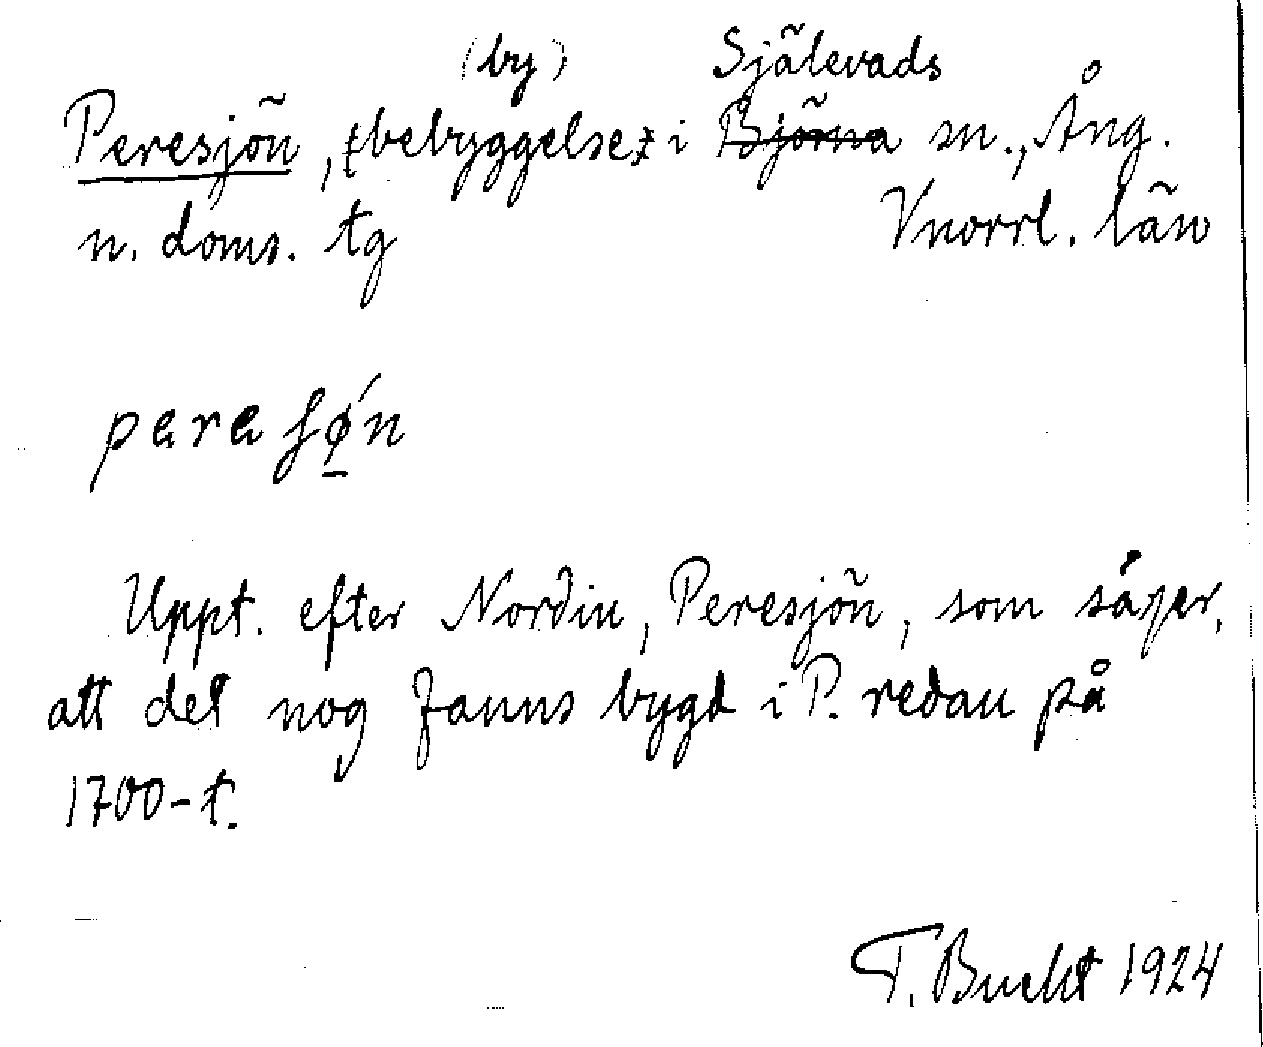 (by) Själevads
Peresjön, (bebyggelse) i Björna sn., Ång.
n. doms. tg Vnorrl. län
peresǿn
Uppt. efter Nordin, Peresjön, som säger,
att det nog fanns bygd i P. redan på
1700-t.
T. Bucht 1924